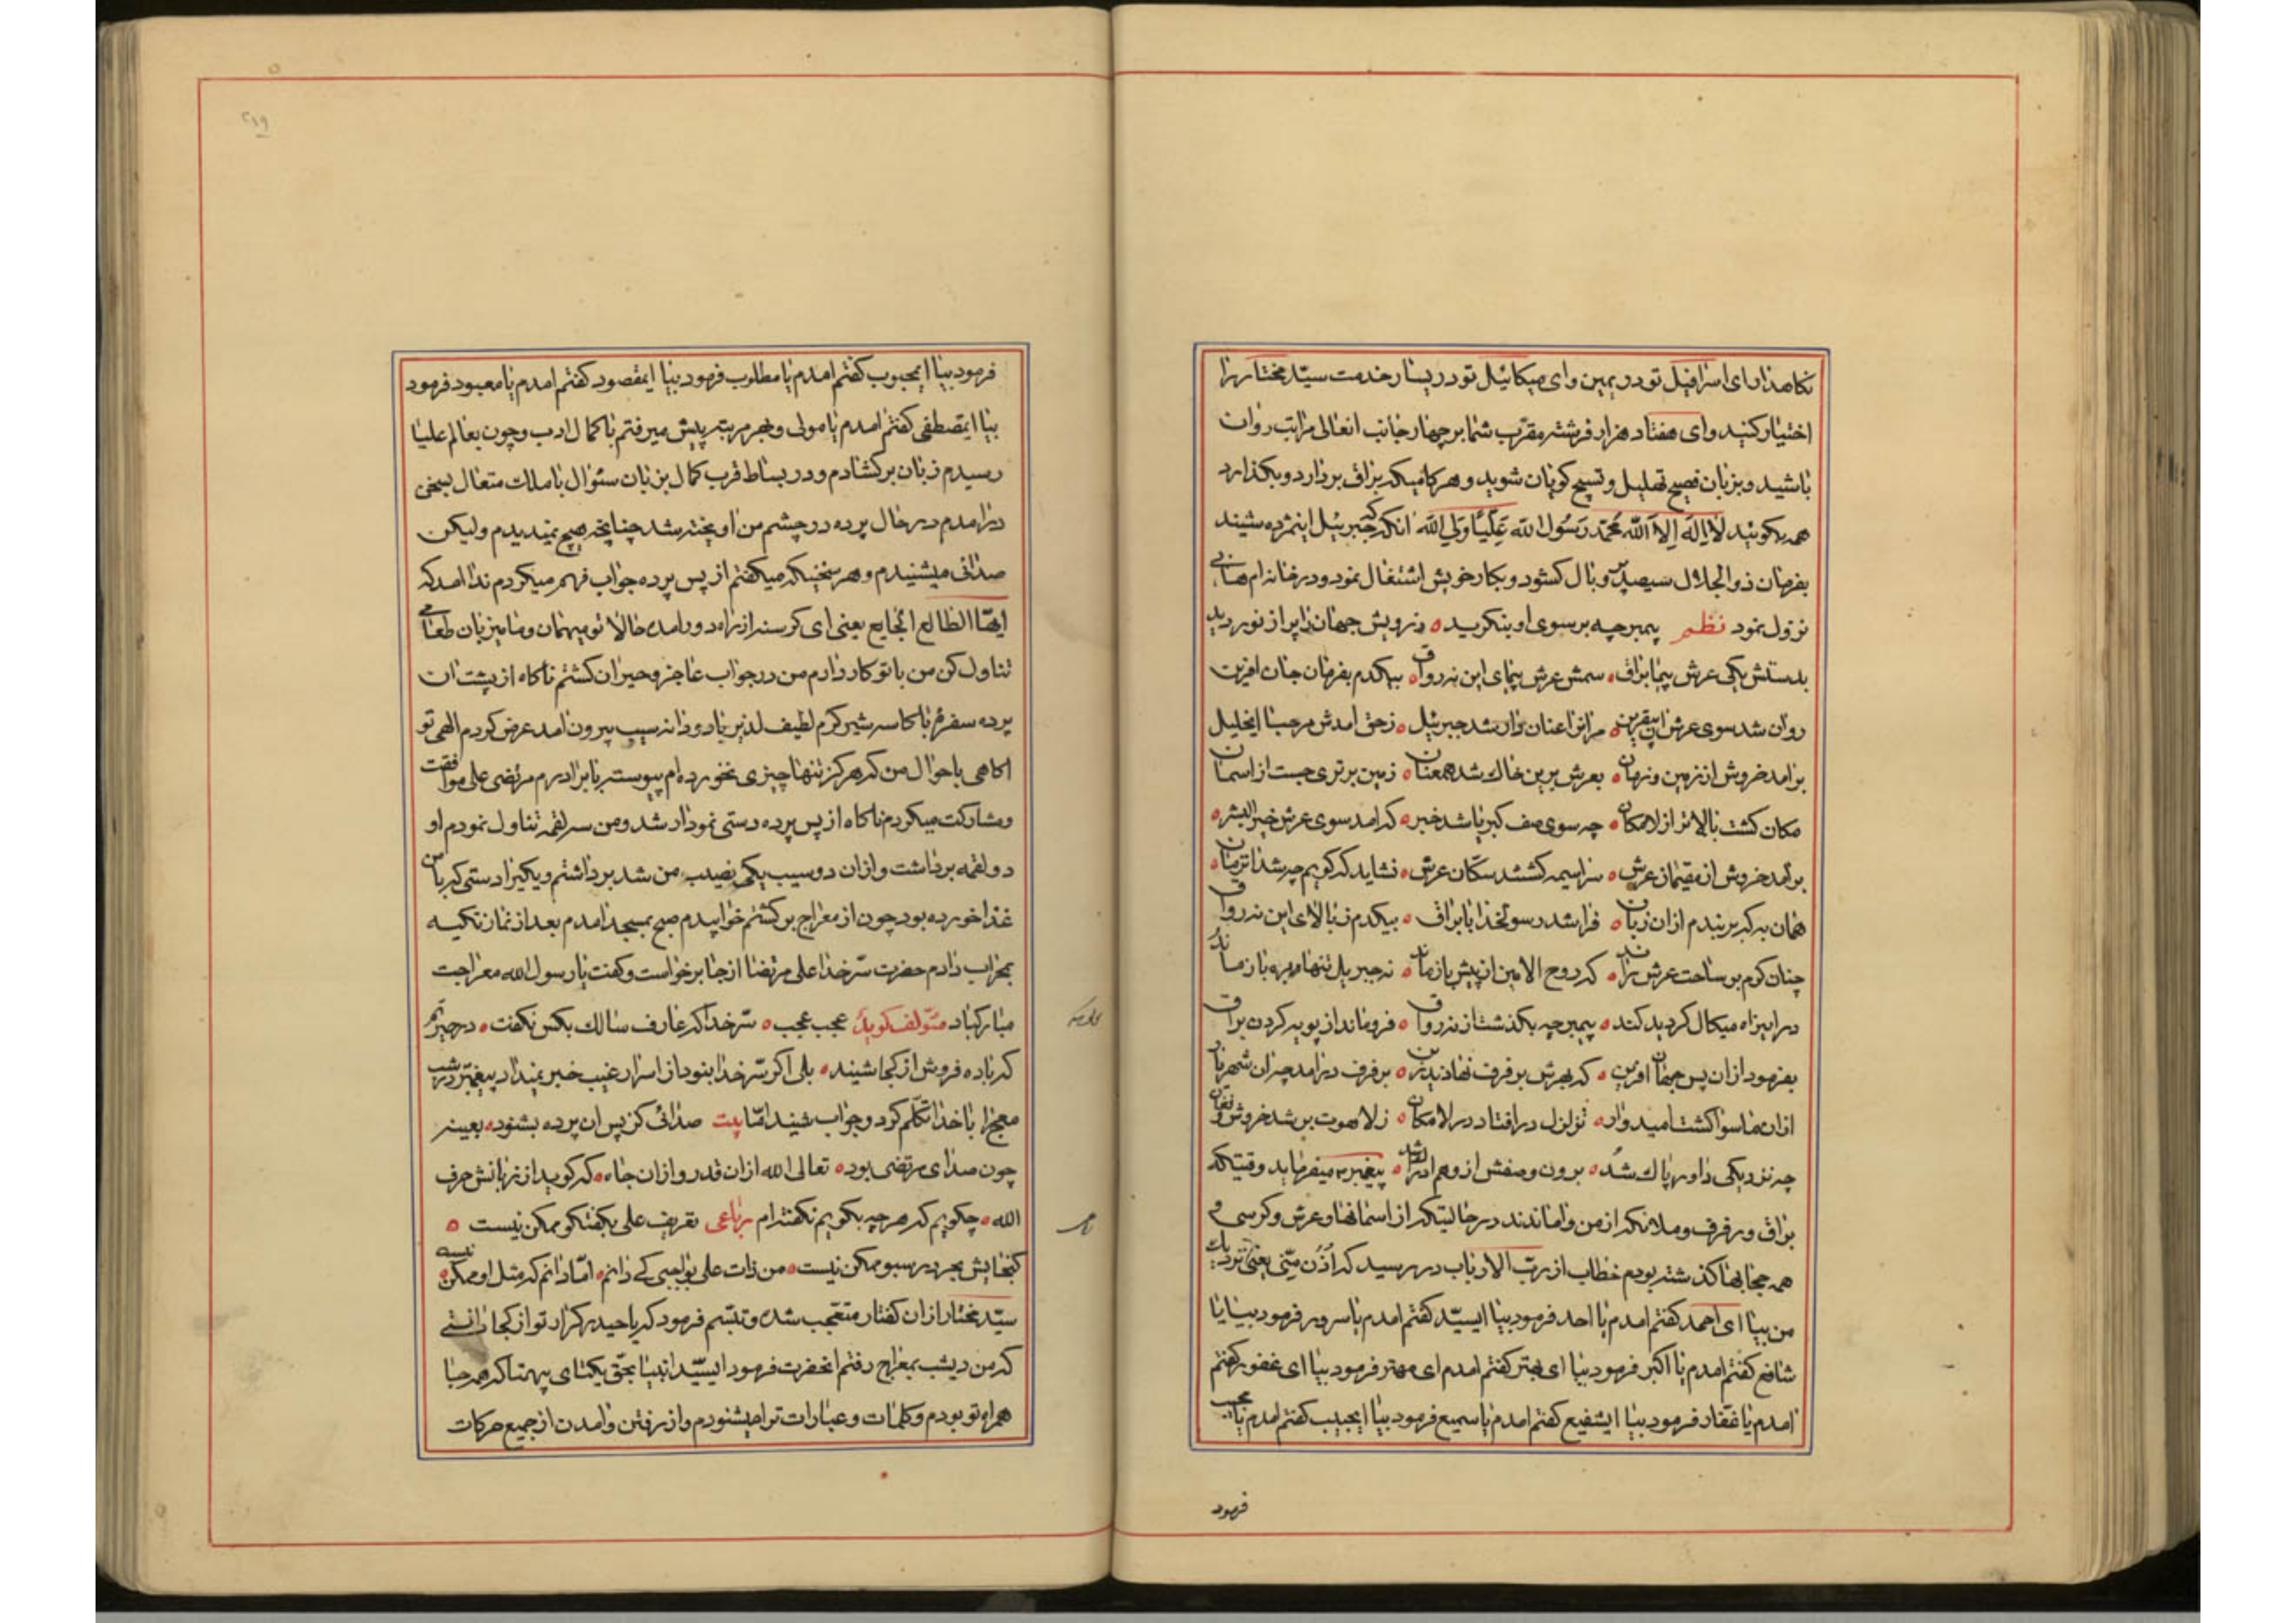 نکاهدار ای اسرافیل تو در یمین و ای میکائیل تو در یسار خدمت سیّد مختار را
اختیار کنید و ای هفتاد هزار فرشته مقرّب شما بر چهار جانب انعالی مراتب روان
باشید و بزبان فصیح تهلیل و تسبیح کویان شوید و هر کامیکه براق بردارد و بکذارد
همه بکوئید لا اله الا الله محمّد رسول الله علیّاً ولی الله انکه که جبرئیل اینمژده شنید
بفرمان ذوالجلال سیصد پر و بال کشود و بکار خویش اشتغال نمود و در خانه ام هانی
نزول نمود نظم پیمبر چه بر سوی او بنکرید ه ز رویش جهان را پر از نور دید
بدستش یکی عرش پیما براق ه سمش عرش پیمای این نه رواق ه بیکدم بفرمان جان افرین
روان شد سوی عرش مر انرا عنان دار شد جبرئیل ه ز حق امدش مرحبا ایخلیل
برامد خروش از زمین و زمان ه بعرش برین خاک شد همعنان ه زمین برتری جست از اسمان
مکان کشت بالاتر از لامکان ه چه سوی صف کبریا شد خبر ه که امد سوی عرش خیر البشر ه
برآمد خروش از مقیمان عرش ه سراسیمه کشتند سکّان عرش ه نشاید که کویم چه شد انزمان ه
همان به که بربندم از ان زبان ه فرا شد رسولخدا با براق ه بیکدم ز بالای این نه رواق
چنان کرم بر ساحت عرش راند ه که روح الامین از پیش باز ماند ه نه جبریل تنها و بره باز ماند
در ایزاه میکال کردید کند ه پیمبر چه بکذشت از نه رواق ه فرو ماند از پویه کردن براق
بفرمود از ان پس جهان افرین ه که بهرش برفرف نهادند زین ه برفرف درامد چه ان شهریار
از ان ماسوا کشت امیدوار ه تزلزل در افتاد در لامکان ه ز لاهوت بر شد خروش و فغان
چه نزدیکی داور پاک شد ه برون وصفش از وهم ادراک شد ه پیغمبر میفرماید وقتیکه
براق و رفرف و ملائکه از من واماندند در حالیتکه از اسمانها و عرش و کرسی و
همه حجابها کذشته بودم خطاب از ربّ الارباب در رسید که اُدْنُ منّی یعنی نزدیک
من بیا ای احمد کفتم امدم یا احد فرمود بیا ایسیّد کفتم امدم یا سرور فرمود بیا یا
شافع کفتم امدم یا اکبر فرمود بیا ای بهتر کفتم امدم ای مهتر فرمود بیا ای غفور کفتم
امدم یا غفّار فرمود بیا ایشفیع کفتم امدم یا سمیع فرمود بیا ایحبیب کفتم امدم یا مجیب
فرمود
۲۱۹
فرمود بیا ایمحبوب کفتم امدم یا مطلوب فرمود بیا ایمقصود کفتم امدم یا معبود فرمود
بیا ایمصطفی کفتم امدم یا مولی و بهر مرتبه پیش میرفتم با کمال ادب و چون بعالم علیا
رسیدم زبان برکشادم و در بساط قرب کمال بزبان سئوال با ملک متعال بسخن
درامدم در حال پرده در چشم من اویخته شد چنانچه هیچ نمیدیدم ولیکن
صدائی میشنیدم و هر سخنیکه میکفتم از پس پرده جواب فهم میکردم ندا امد که
ایّها الطالع الجایع یعنی ای کرسنه از راه دور امده حالا تو میهمان و ما میزبان طعامی
تناول کن من با تو کار دارم من در جواب عاجز و حیران کشتم ناکاه از پشت ان
پرده سفرهٔ با کاسه شیر کرم لطیف لذیز با دو دانه سیب بیرون امد عرض کردم الهی تو
اکاهی باحوال من که هرکز تنها چیزی نخورده ام پیوسته با برادرم مرتضی علی موافقت
و مشارکت میکردم ناکاه از پس پرده دستی نمودار شد و من سه لقمه تناول نمودم او
دو لقمه برداشت و از ان دو سیب یکی نصیب من شد برداشتم و یکیرا دستی که با من
غذا خورده بود چون از معراج برکشتم خوابیدم صبح بمسجد امدم بعد از نماز تکیه
بمحراب دادم حضرت سرّ خدا علی مرتضا از جا برخواست و کفت یا رسول الله معراجت
مبارکباد مؤلف کوید عجب عجب ه سرّ خدا که عارف سالک بکس نکفت ه در حیرتم
که باده فروش از کجا شنید ه بلی اکر سرّ خدا بنود از اسرار غیب خبر نمیداد پیغمبر در شب
معراج با خدا تکلّم کرد و جواب شنید امّا بیت صدائی کز پس ان پرده بشنود ه بعینه
چون صدای مرتضی بود ه تعالی الله از ان قدر و از ان جاه ه که کوید از زبانش حرف
الله ه چکویم که هر چه بکویم نکفته ام رباعی تعریف علی بکفتکو ممکن نیست ه
کنجایش بحر در سبو ممکن نیست ه من ذات علی بواجبی کے دانم ه امّا دانم که مثل او ممکن نیست ه
سیّد مختار از ان کفتار متعجّب شده و تبسّم فرمود که یا حیدر کرّار تو از کجا دانستی
که من دیشب بمعراج رفتم انحضرت فرمود ایسیّد انبیا بحقّ یکتای بیهمتا که همه جا
همراه تو بودم و کلمات و عبارات ترا میشنودم و از رفتن و امدن از جمیع حرکات